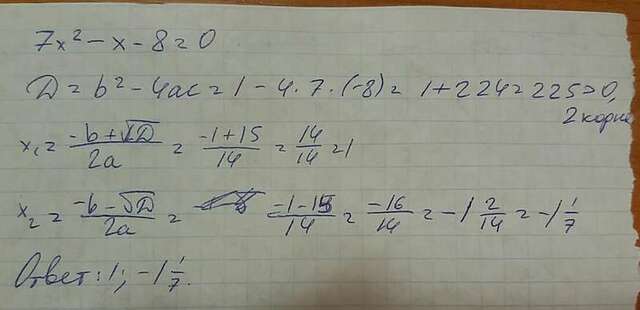 7x² - x - 8 = 0
D = b² - 4ac = 1 - 4 · 7 · (-8) = 1 + 224 = 225 > 0,
2 корня
x₁ = (-b + √D)/2a = (-1 + 15)/14 = 14/14 = 1
x₂ = (-b - √D)/2a = (-1 - 15)/14 = -16/14 = -1 2/14 = -1 1/7
Ответ: 1; -1 1/7.